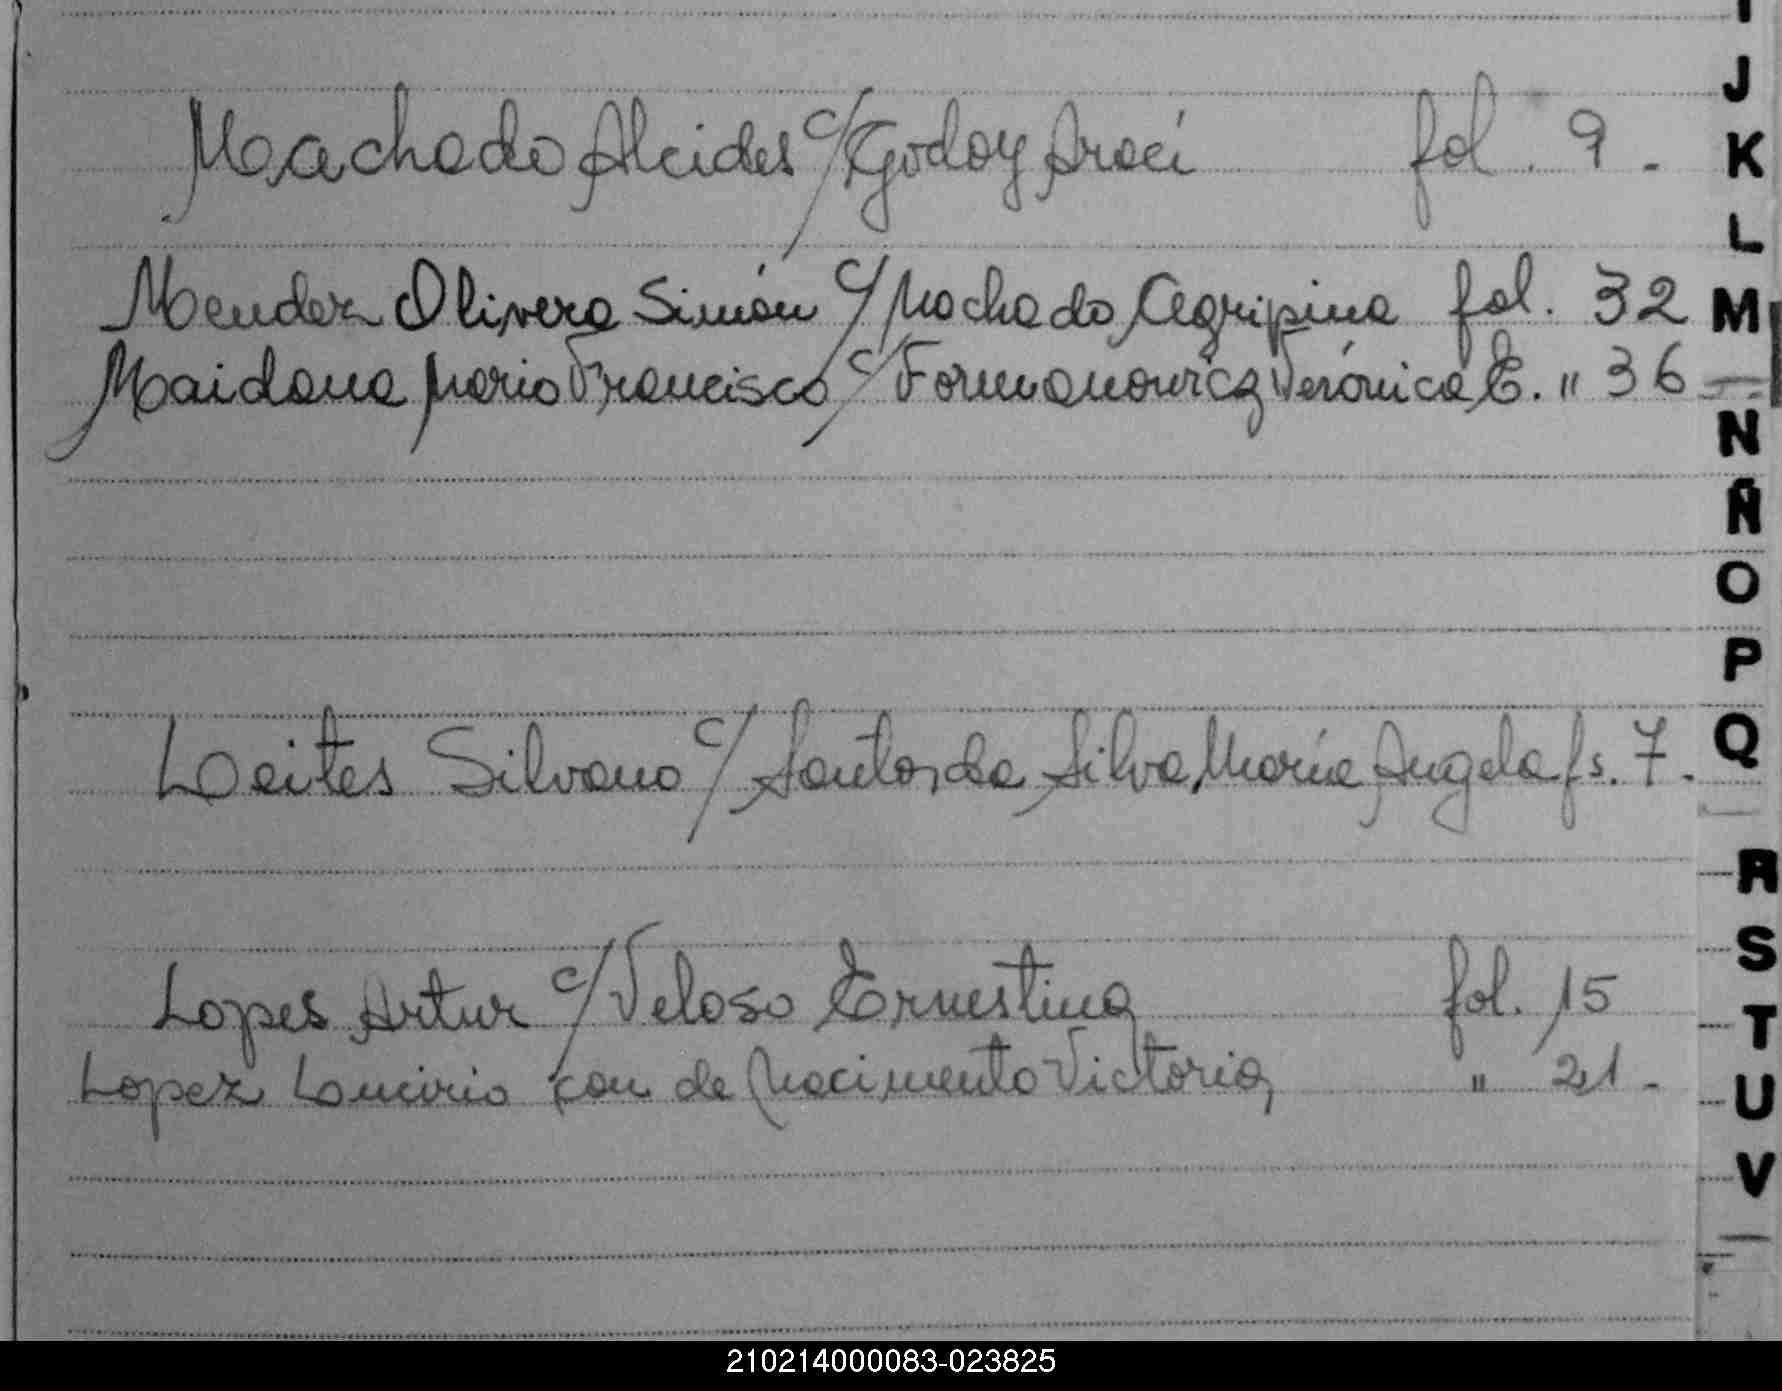 Machado Alcides c/ Godoy Araci fol. 9.
Mendez Olivera Simón c/ Machado Agripina fol. 32
Maidana Mario Francisco c/ Formanowicz Verónica E. " 36
Leites Silvano c/ Santos da Silva, María Angela fs. 7.
Lopes Artur c/ Veloso Ernestina fol. 15
Lopez con de Nacimento Victoria, " 21.
J
K
L
M
N
Ñ
O
P
Q
R
S
T
U
V
210214000083-023825